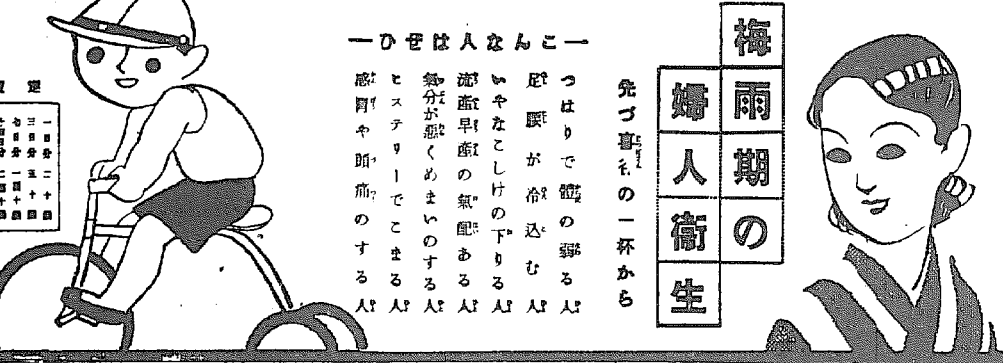 梅雨期の
婦人衛生
先づ喜谷の一杯から
こんな人はぜひ
つはりで體の弱る人
足腰が冷込む人
いやなこしけの下りる人
流産早産の氣配ある人
氣分が悪くめまいのする人
ヒステリーでこまる人
感冒や頭痛のする人